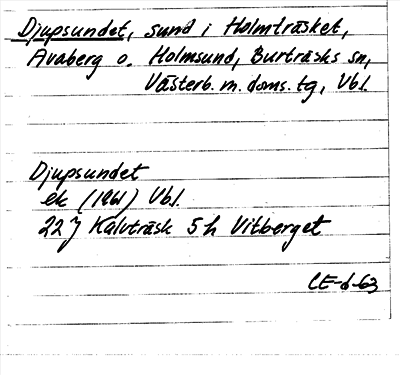 Djupsundet, sund i Holmträsket,
Avaberg o. Holmsund, Burträsks sn,
Västerb. m. doms. tg, Vbl.
Djupsundet
ek (1961) Vbl.
22J Kalvträsk 5h Vitberget
CE-6-63